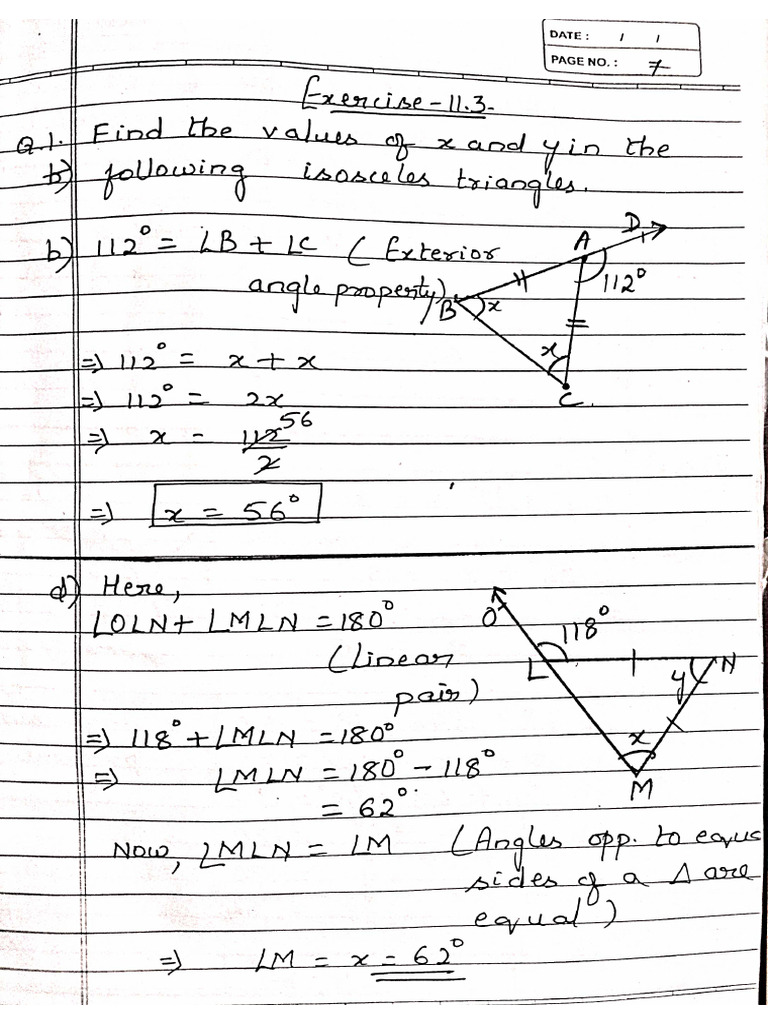 DATE: / /
PAGE NO.: 7
Exercise-11.3.
Q.1. Find the values of x and y in the
b) following isosceles triangles.
b) 112° = ∠B + ∠C ( Exterior
angle property)
D
A
112°
B
x
x
C
⇒ 112° = x + x
⇒ 112° = 2x
⇒ x = 112/2 56
⇒ x = 56°
d) Here,
∠OLN + ∠MLN = 180°
(Linear
pair)
O
118°
L
N
y
x
M
⇒ 118° + ∠MLN = 180°
⇒ ∠MLN = 180° - 118°
= 62°.
Now, ∠MLN = ∠M (Angles opp. to equal
sides of a Δ are
equal)
⇒ ∠M = x = 62°